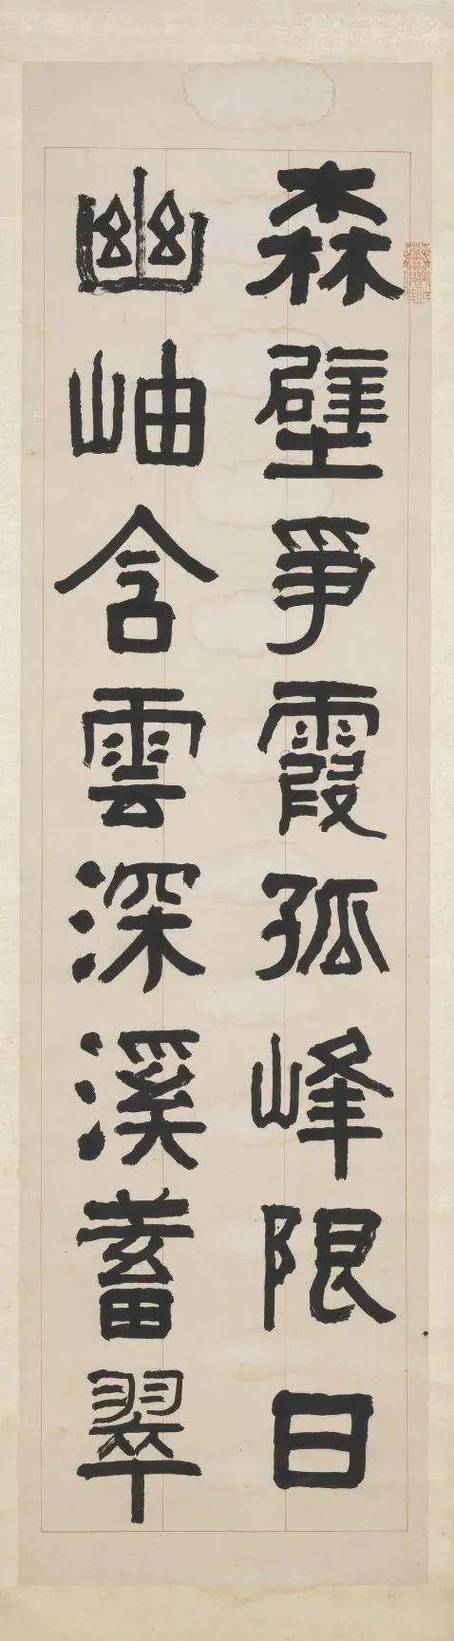 森壁爭霞孤峰限日
幽岫含雲深溪蓄翠